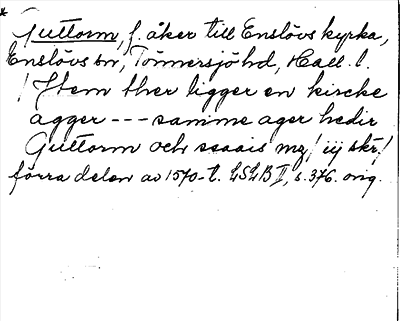 * Guttorm, f. åker till Enslövs kyrka,
Enslövs sn, Tönnersjö hd, Hall. l.
/Item ther ligger en kircke
agger --- samme ager hedir
Guttorm och saais mz/ iij skr/
förra delen av 1570-t. LSLB II, s. 376. orig.